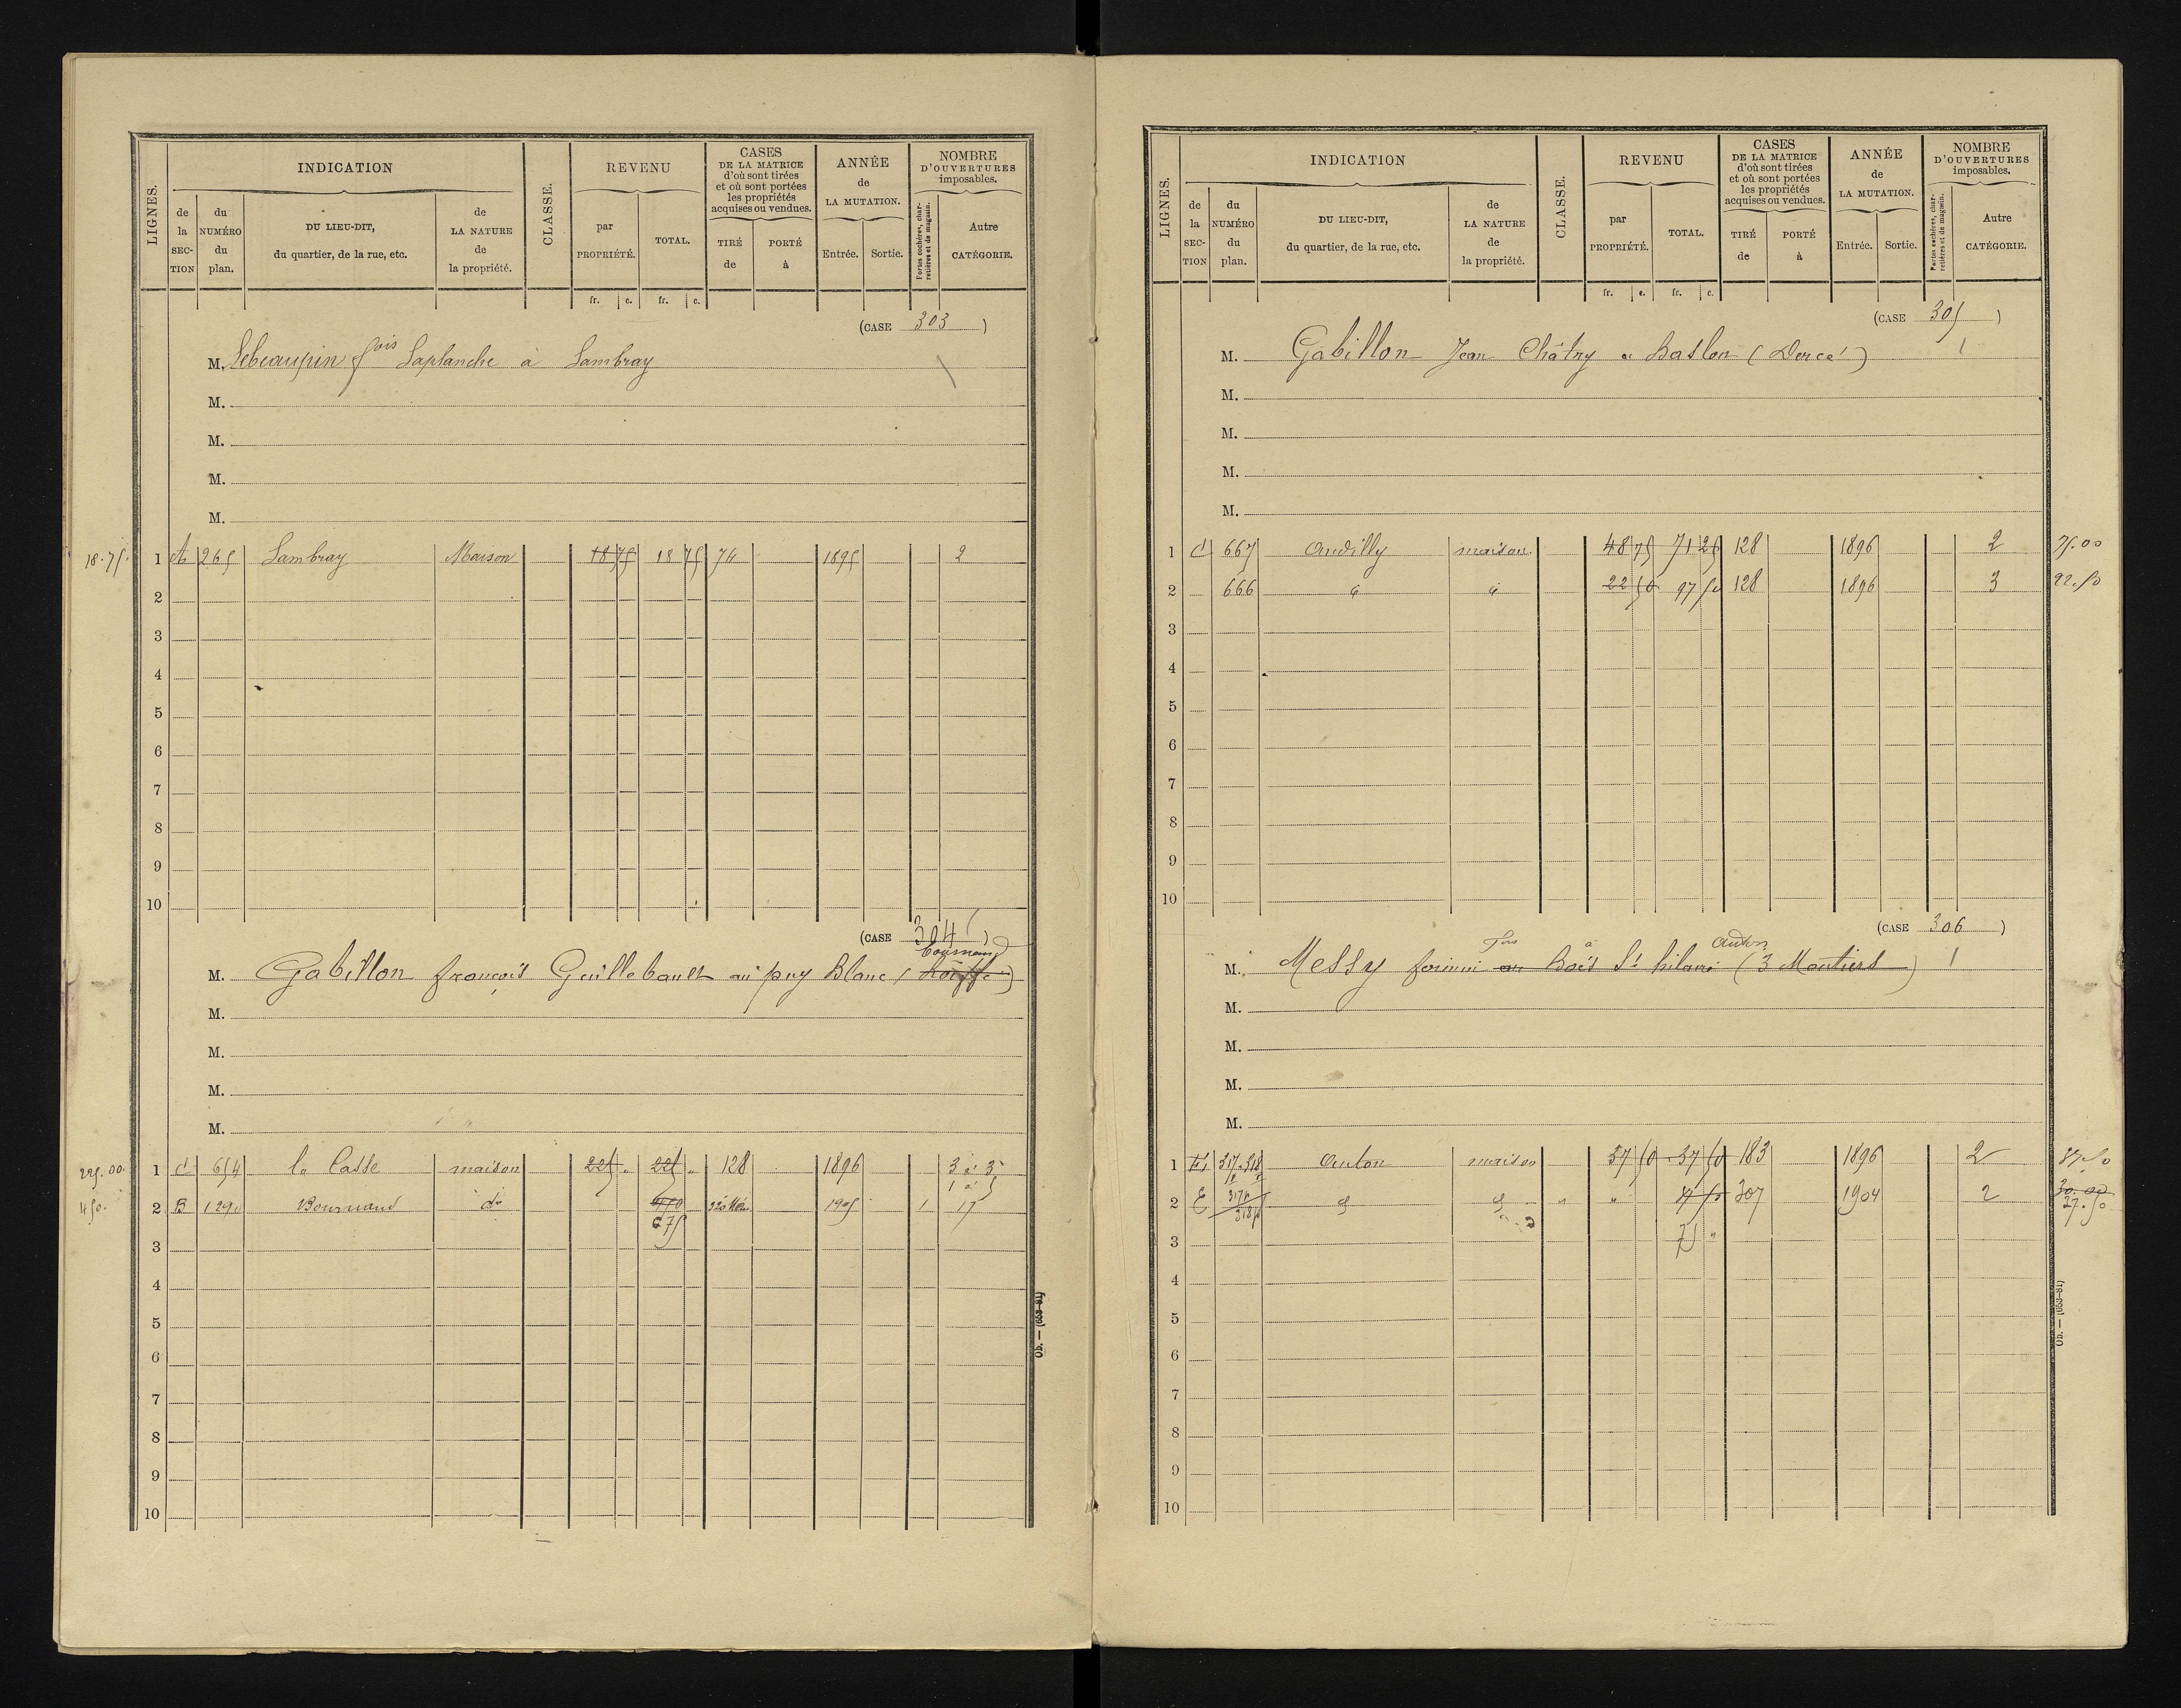 LIGNES.
INDICATION
CLASSE.
REVENU
CASES
DE LA MATRICE
d'où sont tirées
et où sont portées
les propriétés
acquises ou vendues.
ANNÉE
de
LA MUTATION.
NOMBRE
D'OUVERTURES
imposables.
de
la
SEC-
TION
du
NUMÉRO
du
plan.
DU LIEU-DIT,
du quartier, de la rue, etc.
de
LA NATURE
de
la propriété.
par
PROPRIÉTÉ.
TOTAL.
TIRÉ
de
PORTÉ
à
Entrée.
Sortie.
Portes cochères, char-
retières et de magasin.
Autre
CATÉGORIE.
fr. c. fr. c.
(CASE 303 )
M. Lebeaupin fois Laplanche à Sambray
M.
M.
M.
M.
18.75. 1 A 265 Sambray Maison 18 75 18 75 74 1895 2
2
3
4
5
6
7
8
9
10
(CASE 304 )
Bournand
M. Gabillon françois Guillebault au puy Blanc ( Roiffé )
M.
M.
M.
M.
225.00 1 C 654 la Casse maison 225 " 225 " 128 1896 3 à 5
1 à 5
450. 2 B 1290 Bournand do 1905 1 17
675
3
4
5
6
7
8
9
10
Ob. — (653-81)
LIGNES.
INDICATION
CLASSE.
REVENU
CASES
DE LA MATRICE
d'où sont tirées
et où sont portées
les propriétés
acquises ou vendues.
ANNÉE
de
LA MUTATION.
NOMBRE
D'OUVERTURES
imposables.
de
la
SEC-
TION
du
NUMÉRO
du
plan.
DU LIEU-DIT,
du quartier, de la rue, etc.
de
LA NATURE
de
la propriété.
par
PROPRIÉTÉ.
TOTAL.
TIRÉ
de
PORTÉ
à
Entrée.
Sortie.
Portes cochères, char-
retières et de magasin.
Autre
CATÉGORIE.
fr. c. fr. c.
(CASE 305 )
M. Gabillon Jean Châtry à Baslon (Dercé)
M.
M.
M.
M.
1 C 667 Andilly maison 48 75 71 25 128 1896 2 75.00
2 666 " " 22 50 97 50 128 1896 3 22.50
3
4
5
6
7
8
9
10
(CASE 306 )
fois à Anton
M. Messy au Bois St hilaire (3 Moutiers)
M.
M.
M.
M.
1 E 317.318 Anton maison 37 50 37 50 183 1896 2 37.50
2 E 317p 318p " " 37 50 307 1904 2 30.00 37.50
3 75 "
4
5
6
7
8
9
10
Ob. — (653-81)